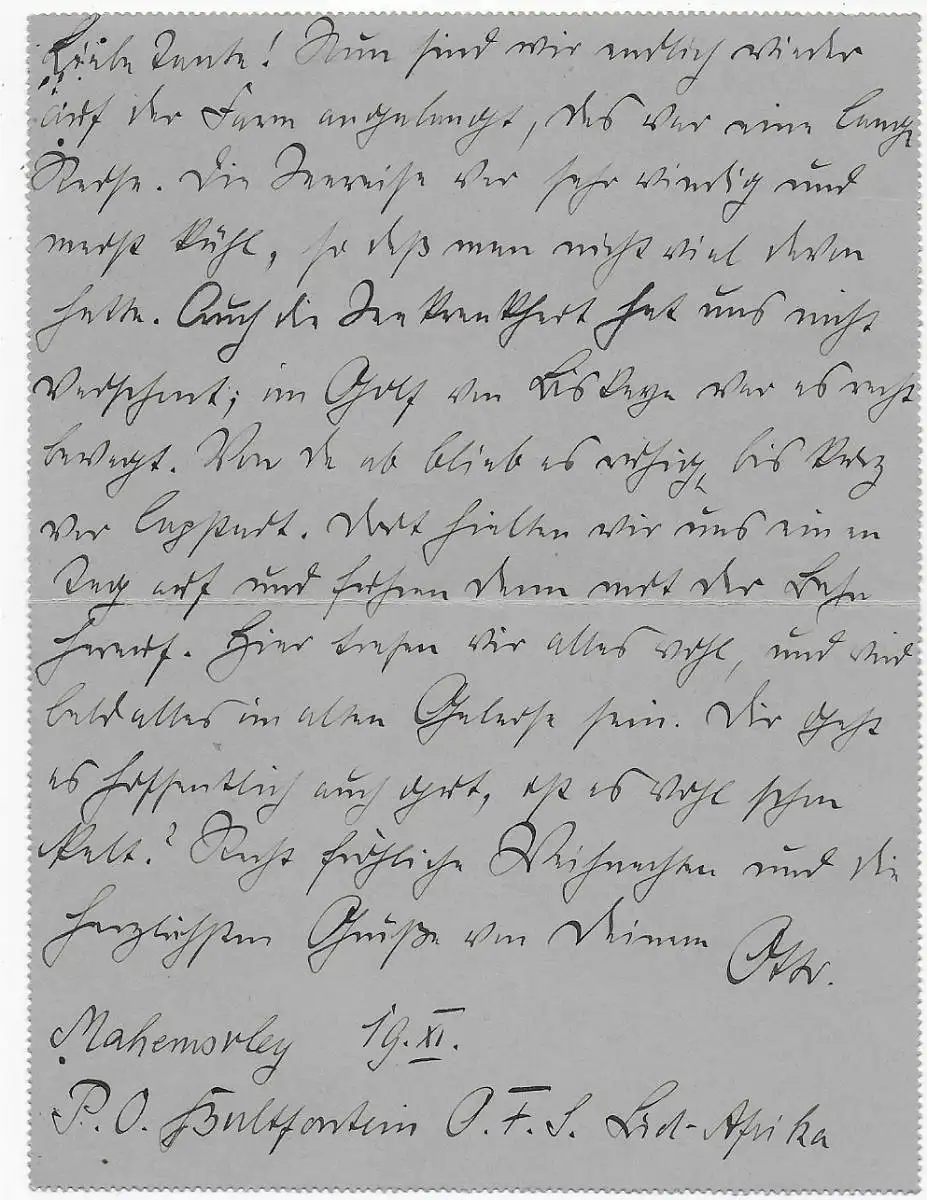 Liebe Tante! Nun sind wir endlich wieder
auf der Farm angelangt, das war eine lange
Reise. Die Seereise war sehr windig und
meist kühl, so daß man nicht viel davon
hatte. Auch die Seekrankheit hat uns nicht
verschont; im Golf von Biskaya war es recht
bewegt. Von da ab blieb es ruhig, bis kurz
vor Capstadt. Dort hielten wir uns einen
Tag auf und fuhren dann mit der Bahn
herauf. Hier trafen wir alles wohl, und wird
bald alles im alten Geleise sein. Dir geht
es hoffentlich auch gut, ist es wohl schon
kalt? Recht fröhliche Weihnachten und die
herzlichsten Grüße von Deinem Otto.
Mahemsvley 19. XI.
P.O. Bultfontein O.F.S. Süd-Afrika